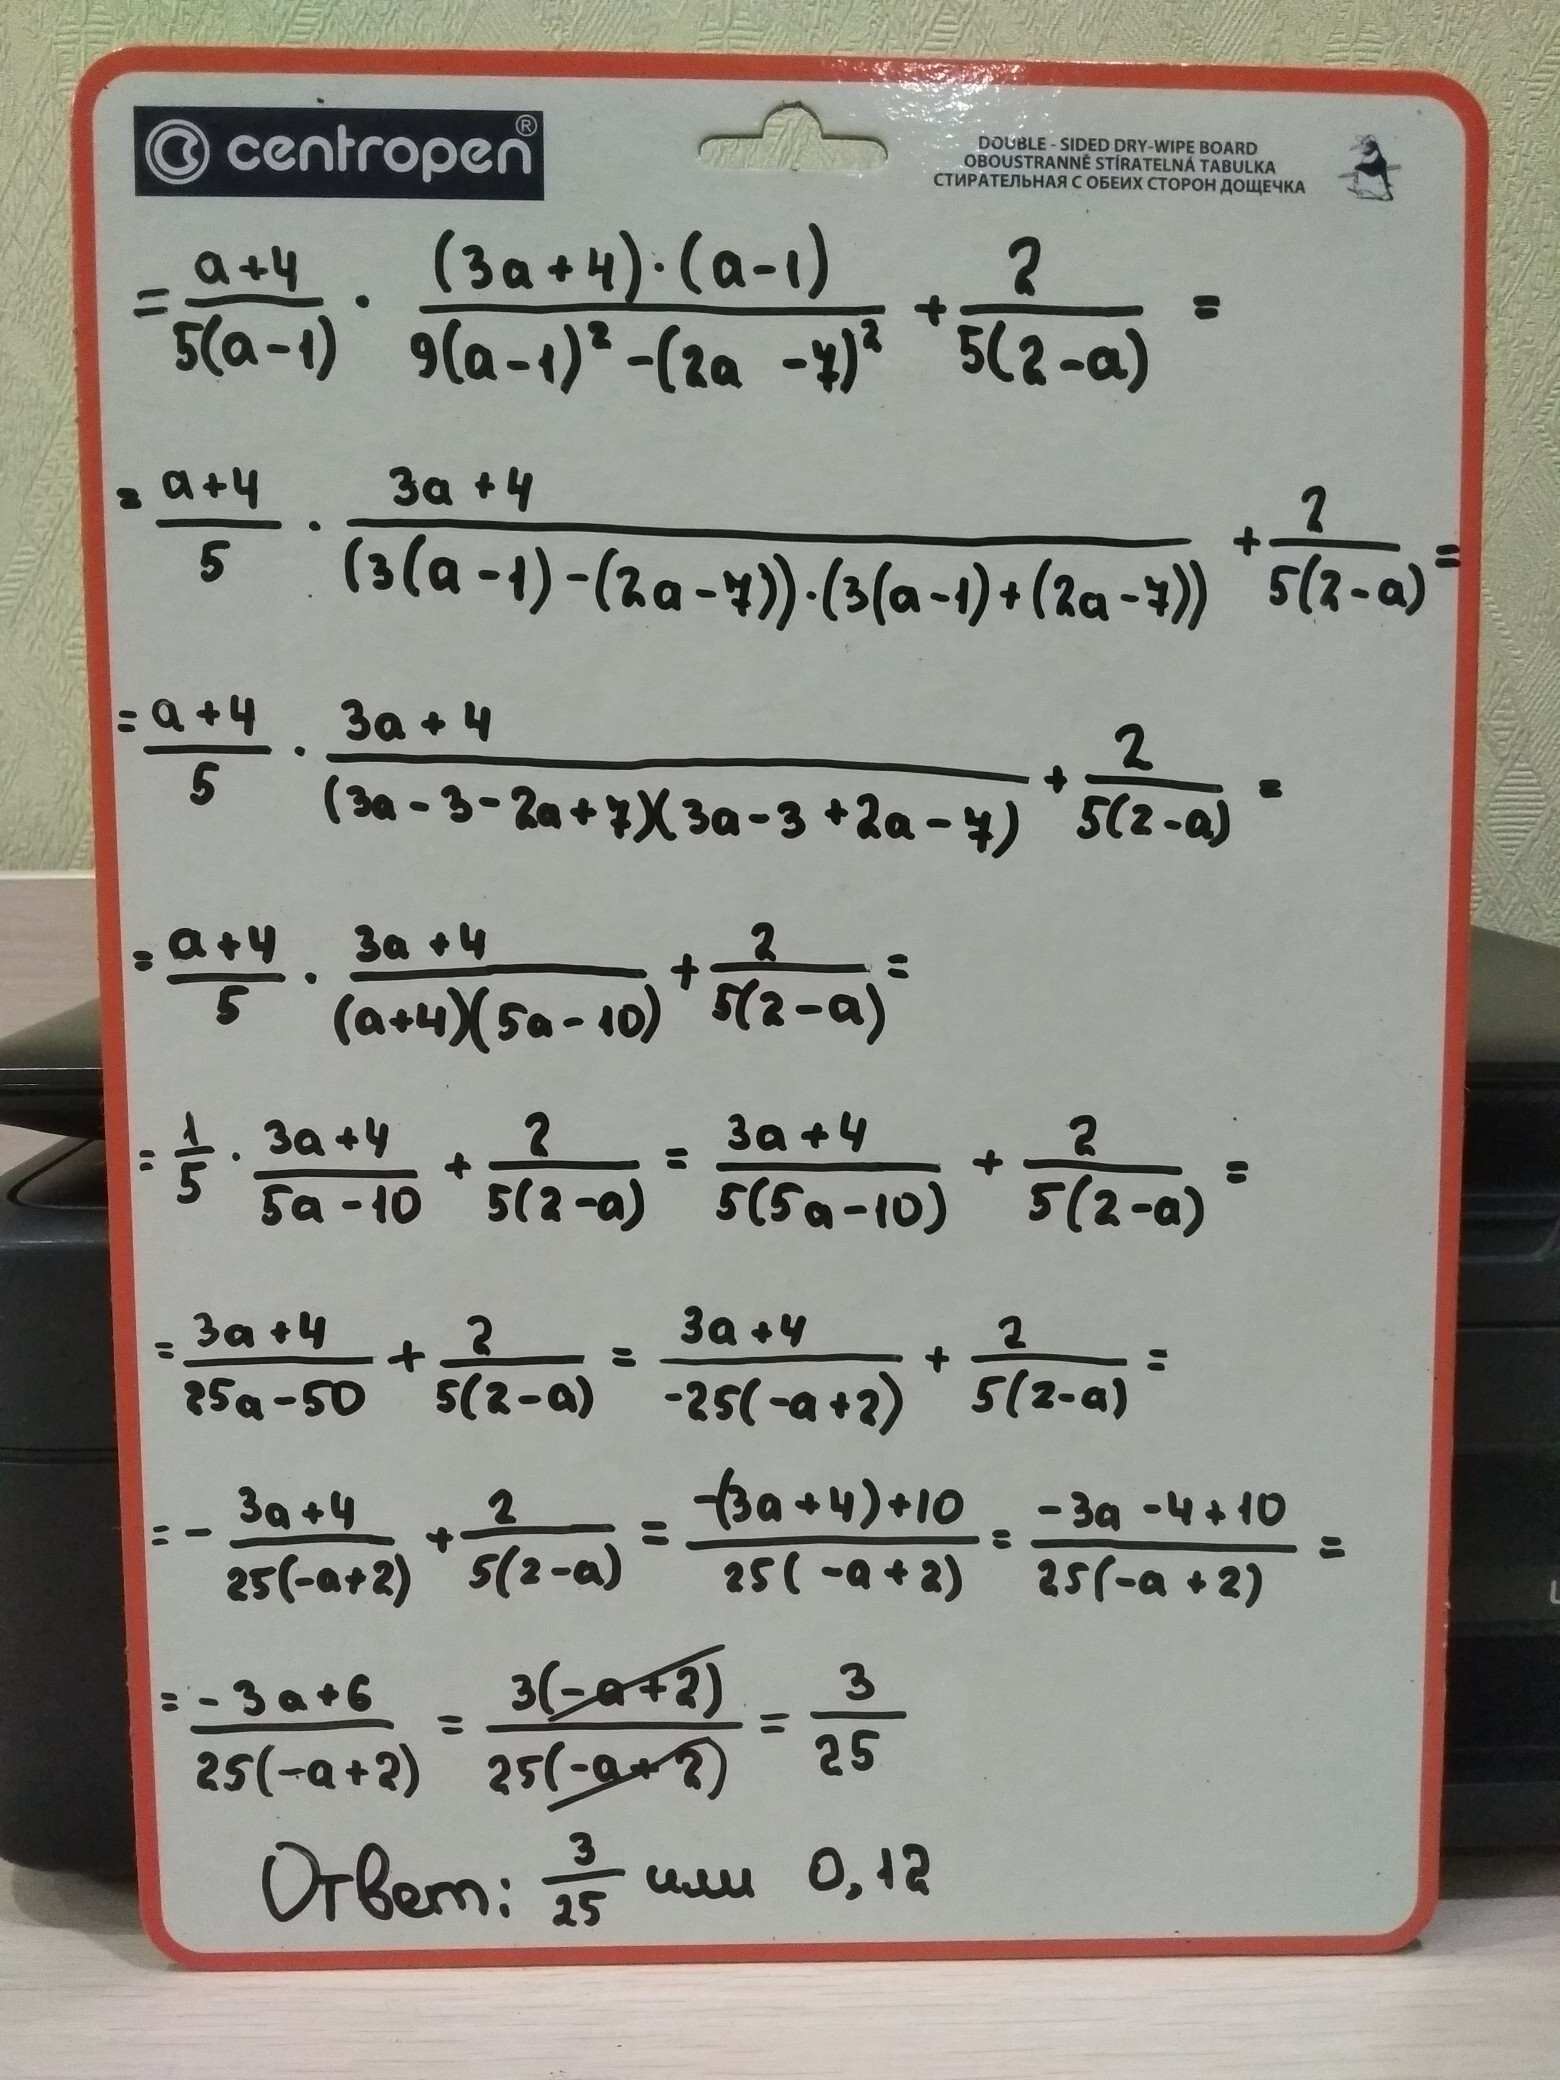 centropen®
DOUBLE - SIDED DRY-WIPE BOARD
OBOUSTRANNĚ STÍRATELNÁ TABULKA
СТИРАТЕЛЬНАЯ С ОБЕИХ СТОРОН ДОЩЕЧКА
= \frac{a+4}{5(a-1)} \cdot \frac{(3a+4)\cdot(a-1)}{9(a-1)^2-(2a-7)^2} + \frac{2}{5(2-a)} =
= \frac{a+4}{5} \cdot \frac{3a+4}{(3(a-1)-(2a-7))\cdot(3(a-1)+(2a-7))} + \frac{2}{5(2-a)} =
= \frac{a+4}{5} \cdot \frac{3a+4}{(3a-3-2a+7)(3a-3+2a-7)} + \frac{2}{5(2-a)} =
= \frac{a+4}{5} \cdot \frac{3a+4}{(a+4)(5a-10)} + \frac{2}{5(2-a)} =
= \frac{1}{5} \cdot \frac{3a+4}{5a-10} + \frac{2}{5(2-a)} = \frac{3a+4}{5(5a-10)} + \frac{2}{5(2-a)} =
= \frac{3a+4}{25a-50} + \frac{2}{5(2-a)} = \frac{3a+4}{-25(-a+2)} + \frac{2}{5(2-a)} =
= - \frac{3a+4}{25(-a+2)} + \frac{2}{5(2-a)} = \frac{-(3a+4)+10}{25(-a+2)} = \frac{-3a-4+10}{25(-a+2)} =
= \frac{-3a+6}{25(-a+2)} = \frac{3(-a+2)}{25(-a+2)} = \frac{3}{25}
Ответ: \frac{3}{25} или 0,12